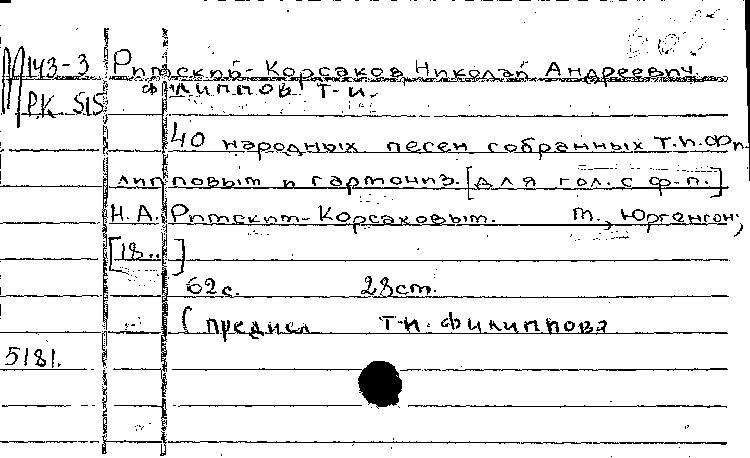 М43-3 Римский-Корсаков Николай Андреевич.
РК 515 Филиппов Т.И.
40 народных песен собранных Т.И.Фи-
липповым и гармониз. [для гол. с ф-п.]
Н.А. Римским-Корсаковым. М., Юргенсон,
[18..]
62с. 28см.
(предисл Т.И. Филиппова
5181.